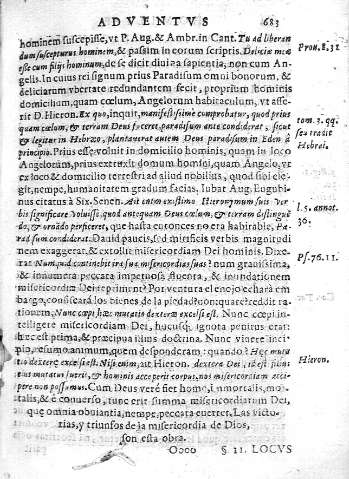 ADVENTVS 683
hominem suscepisse, vt P. Aug. & Ambr. in Cant. Tu ad liberan
dum suscepturus hominem, & passim in eorum scriptis. Deliciæ meæ
esse cum filijs hominum, de se dicit diuina sapientia, non cum An-
gelis. In cuius rei signum prius Paradisum omni bonorum, &
deliciarum vbertate redundantem fecit, proprium hominis
domicilium, quam cœlum, Angelorum habitaculum, vt asse-
rit D. Hieron. Ex quo, inquit, manifestissime comprobatur, quod prius
quam cœlum, & terram Deus faceret, paradisum ante condiderat, sicut
& legitur in Hebræo, plantauerat autem Deus paradisum in Eden à
principio. Prius esse voluit in domicilio hominis, quam in loco
Angelorum, prius extruxit domum homini, quam Angelo, vt
ex loco & domicilio terrestri ad aliud nobilius, quod sibi ele-
git, nempe, humanitatem gradum facias, Iubat Aug. Eugubi-
nus citatus à Six. Senen. Ait enim
bis significare voluisse, quod antequam Deus cœlum, & terram distingue
do, & ornãdo perficeret, que hasta entonces no era habirable, Pa-
radisum condiderat. Dauid paucis, sed mirificis verbis magnitudi
nem exaggerat, & extollit misericordiam Dei hominis. Dixe-
rat: Nunquid continebit in ira sua misericordias suas? num grauissima,
& innumera peccata impetuosa flumina, & inundationem
misericordiæ Dei repriment? Por ventura el enojo echarà em
bargo, consiscarà los bienes de la piedad? non quaret? reddit ra-
tionem, Nunc cœpi hæc mutatio dexteræ excelsi est. Nunc cœpi in-
telligere misericordiam Dei, hucusq; ignota penitus erat:
hæc est prima, & præcipua illius doctrina. Nunc viuere inci-
pio, resumo animum, quem desponderam: quando? Hæc muta
tio dexteræ excelsi est. Nisi enim, ait Hieron. dextera Dei, id est filius
eius mutatus fuerit, & hominis acceperit corpus, nos misericordiam acci-
pere non possumus. Cum Deus verè fiet homo, immortalis, mor-
talis, & è conuerso, tunc erit summa misericordiarum Dei,
que omnia obuiantia, nempe, peccata euerret. Las victo-
rias, y triunfos de la misericordia de Dios,
son esta obra.
Oooo § 11. LOCVS
Prou. 8. 31
tom. 3. qq.
seu tradit
Hebrei.
l. 5. annot.
36.
Ps. 76. 11.
Hieron.